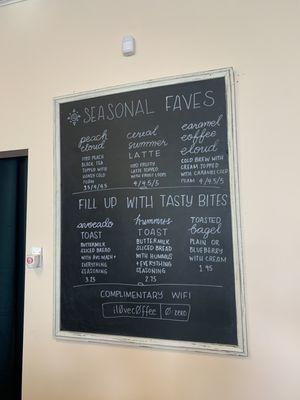 SEASONAL FAVES
peach cloud
ICED PEACH
BLACK TEA
TOPPED
WITH
HONEY COLD
FOAM
3.5/4/4.5
cereal summer
LATTE
ICED FRUITY
LATTE TOPPED
WITH FRUIT LOOPS
4/4.5/5
caramel coffee cloud
COLD BREW WITH
CREAM TOPPED
WITH CARAMEL COLD
FOAM 4/4.5/5
FILL UP WITH TASTY BITES
avocado
TOAST
BUTTERMILK
SLICED BREAD
WITH AVO MASH +
EVERYTHING
SEASONING
3.25
hummus
TOAST
BUTTERMILK
SLICED BREAD
WITH HUMMUS
+ EVERYTHING
SEASONING
2.75
TOASTED
bagel
PLAIN OR
BLUEBERRY
WITH CREAM
1.95
COMPLIMENTARY WIFI
il0vec0ffee
0 ZERO